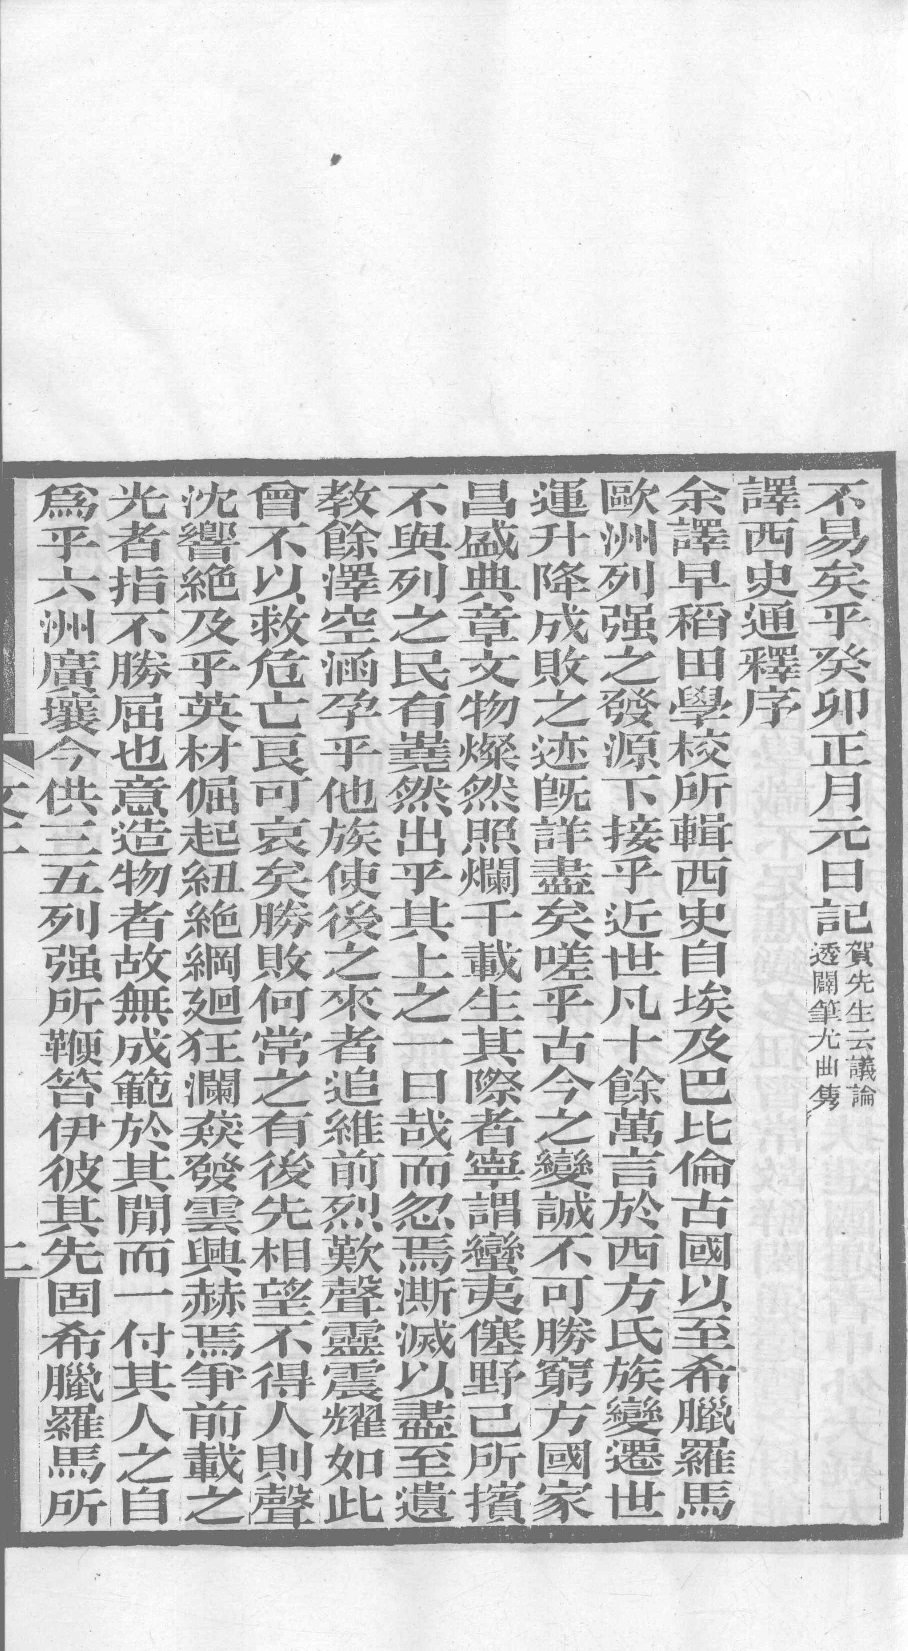 不易矣乎癸卯正月元日記賀先生云議論透闢筆尤曲雋
譯西史通釋序
余譯早稻田學校所輯西史自埃及巴比倫古國以至希臘羅馬
歐洲列强之發源下接乎近世凡十餘萬言於西方氏族變遷世
運升降成敗之迹旣詳盡矣嗟乎古今之變誠不可勝窮方國家
昌盛典章文物燦然照爛千載生其際者寧謂蠻夷僿野己所擯
不與列之民有嶤然出乎其上之一日哉而忽焉澌滅以盡至遺
教餘澤空涵孕乎他族使後之來者追維前烈歎聲靈震耀如此
曾不以救危亡良可哀矣勝敗何常之有後先相望不得人則聲
沈響絶及乎英材倔起紐絶綱廻狂瀾猋發雲興赫焉爭前載之
光者指不勝屈也意造物者故無成範於其閒而一付其人之自
爲乎六洲廣壤今供三五列强所鞭笞伊彼其先固希臘羅馬所
文一
二